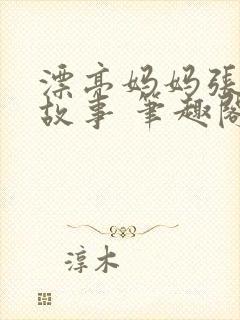 漂亮妈妈張
故事 筆趣閣
淳木